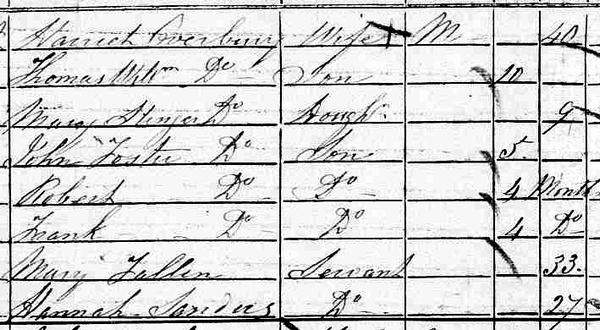 Harriet Overbury Wife M 40
Thomas Wm Do Son 10
Mary Do Daugh. 9
John Foster Do Son 5
Robert Do Do 4 Months
Frank Do Do 4 Do
Mary Fallen Servant 33
Hannah Sanders Do 27